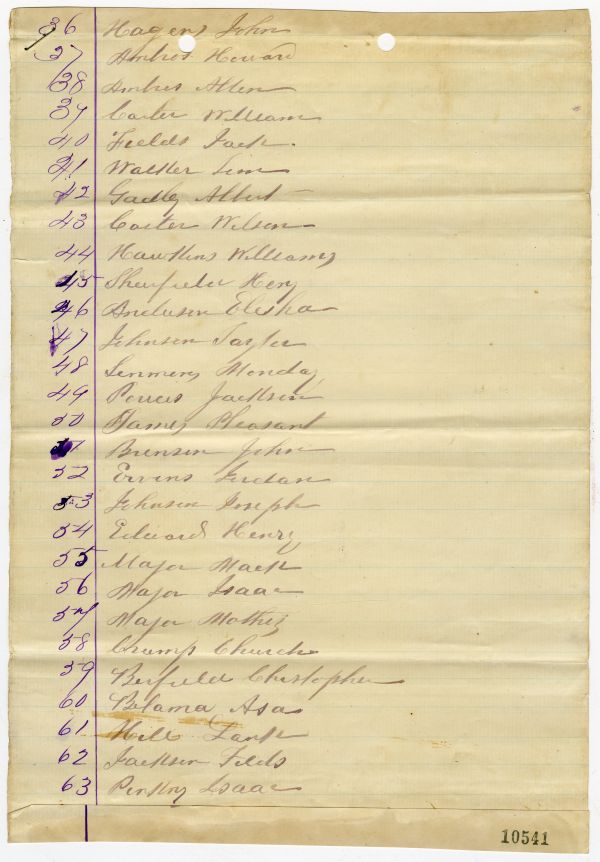 36 Hagens John
37 Ambros Howard
38 Ambros Allen
39 Carter William
40 Fields Jack.
41 Walker Sim
42 Gadley Albert
43 Carter Wilson
44 Hawkins Williams
45 Sheufield Henry
46 Anderson Elisha
47 Johnson Saylor
48 Monday
49 Jackson
50 James Pleasant
51 Brenson John
52 Ervins
53 Johnson Joseph
54 Edward Henry
55 Major Mack
56 Major Isaac
57 Major
58 Crump Church
59 Berfield Chestopher
60 Belama Asa
61 Hill Lank
62 Jackson Felds
63 Pinkny Isaac
10541